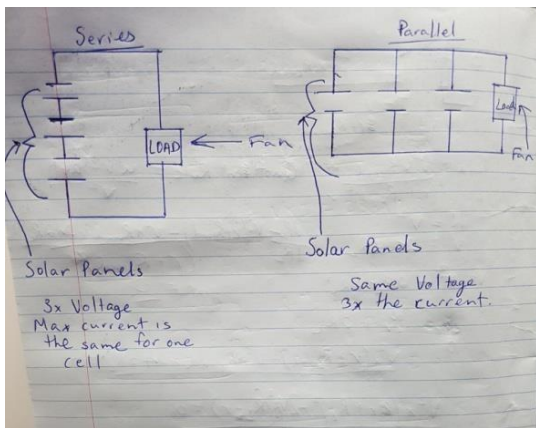 Series
LOAD
Fan
Solar Panels
3x Voltage
Max current is
the same for one
cell
Parallel
Load
Fan
Solar Panels
Same Voltage
3x the current.